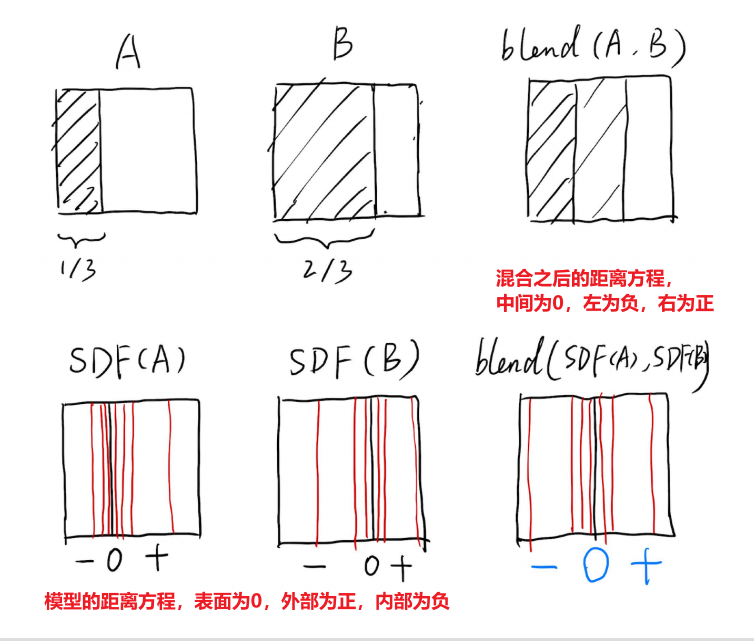 A
B
blend (A. B)
1/3
2/3
混合之后的距离方程，
中间为0，左为负，右为正
SDF(A)
SDF(B)
blend(SDF(A),SDF(B)
- 0 +
- 0 +
- 0 +
模型的距离方程，表面为0，外部为正，内部为负